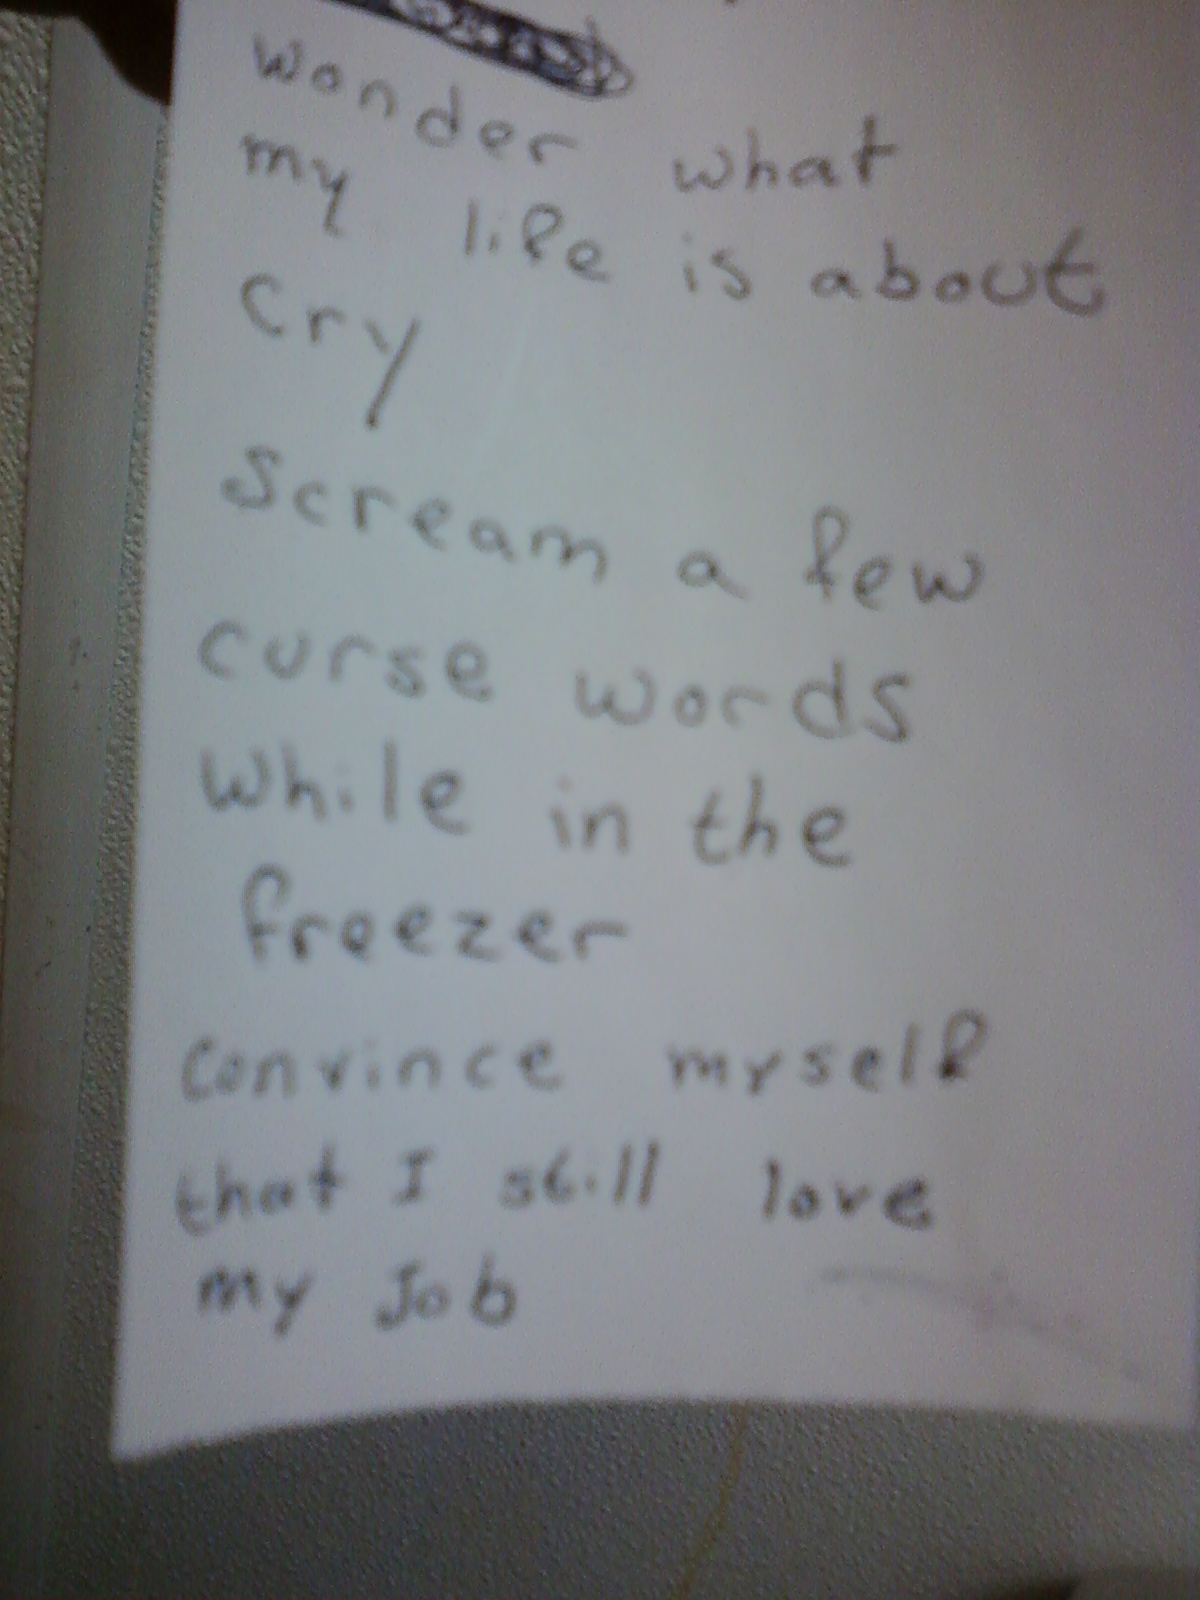 wonder what
my life is about
Cry
Scream a few
curse words
while in the
freezer
convince myself
that I still love
my Job